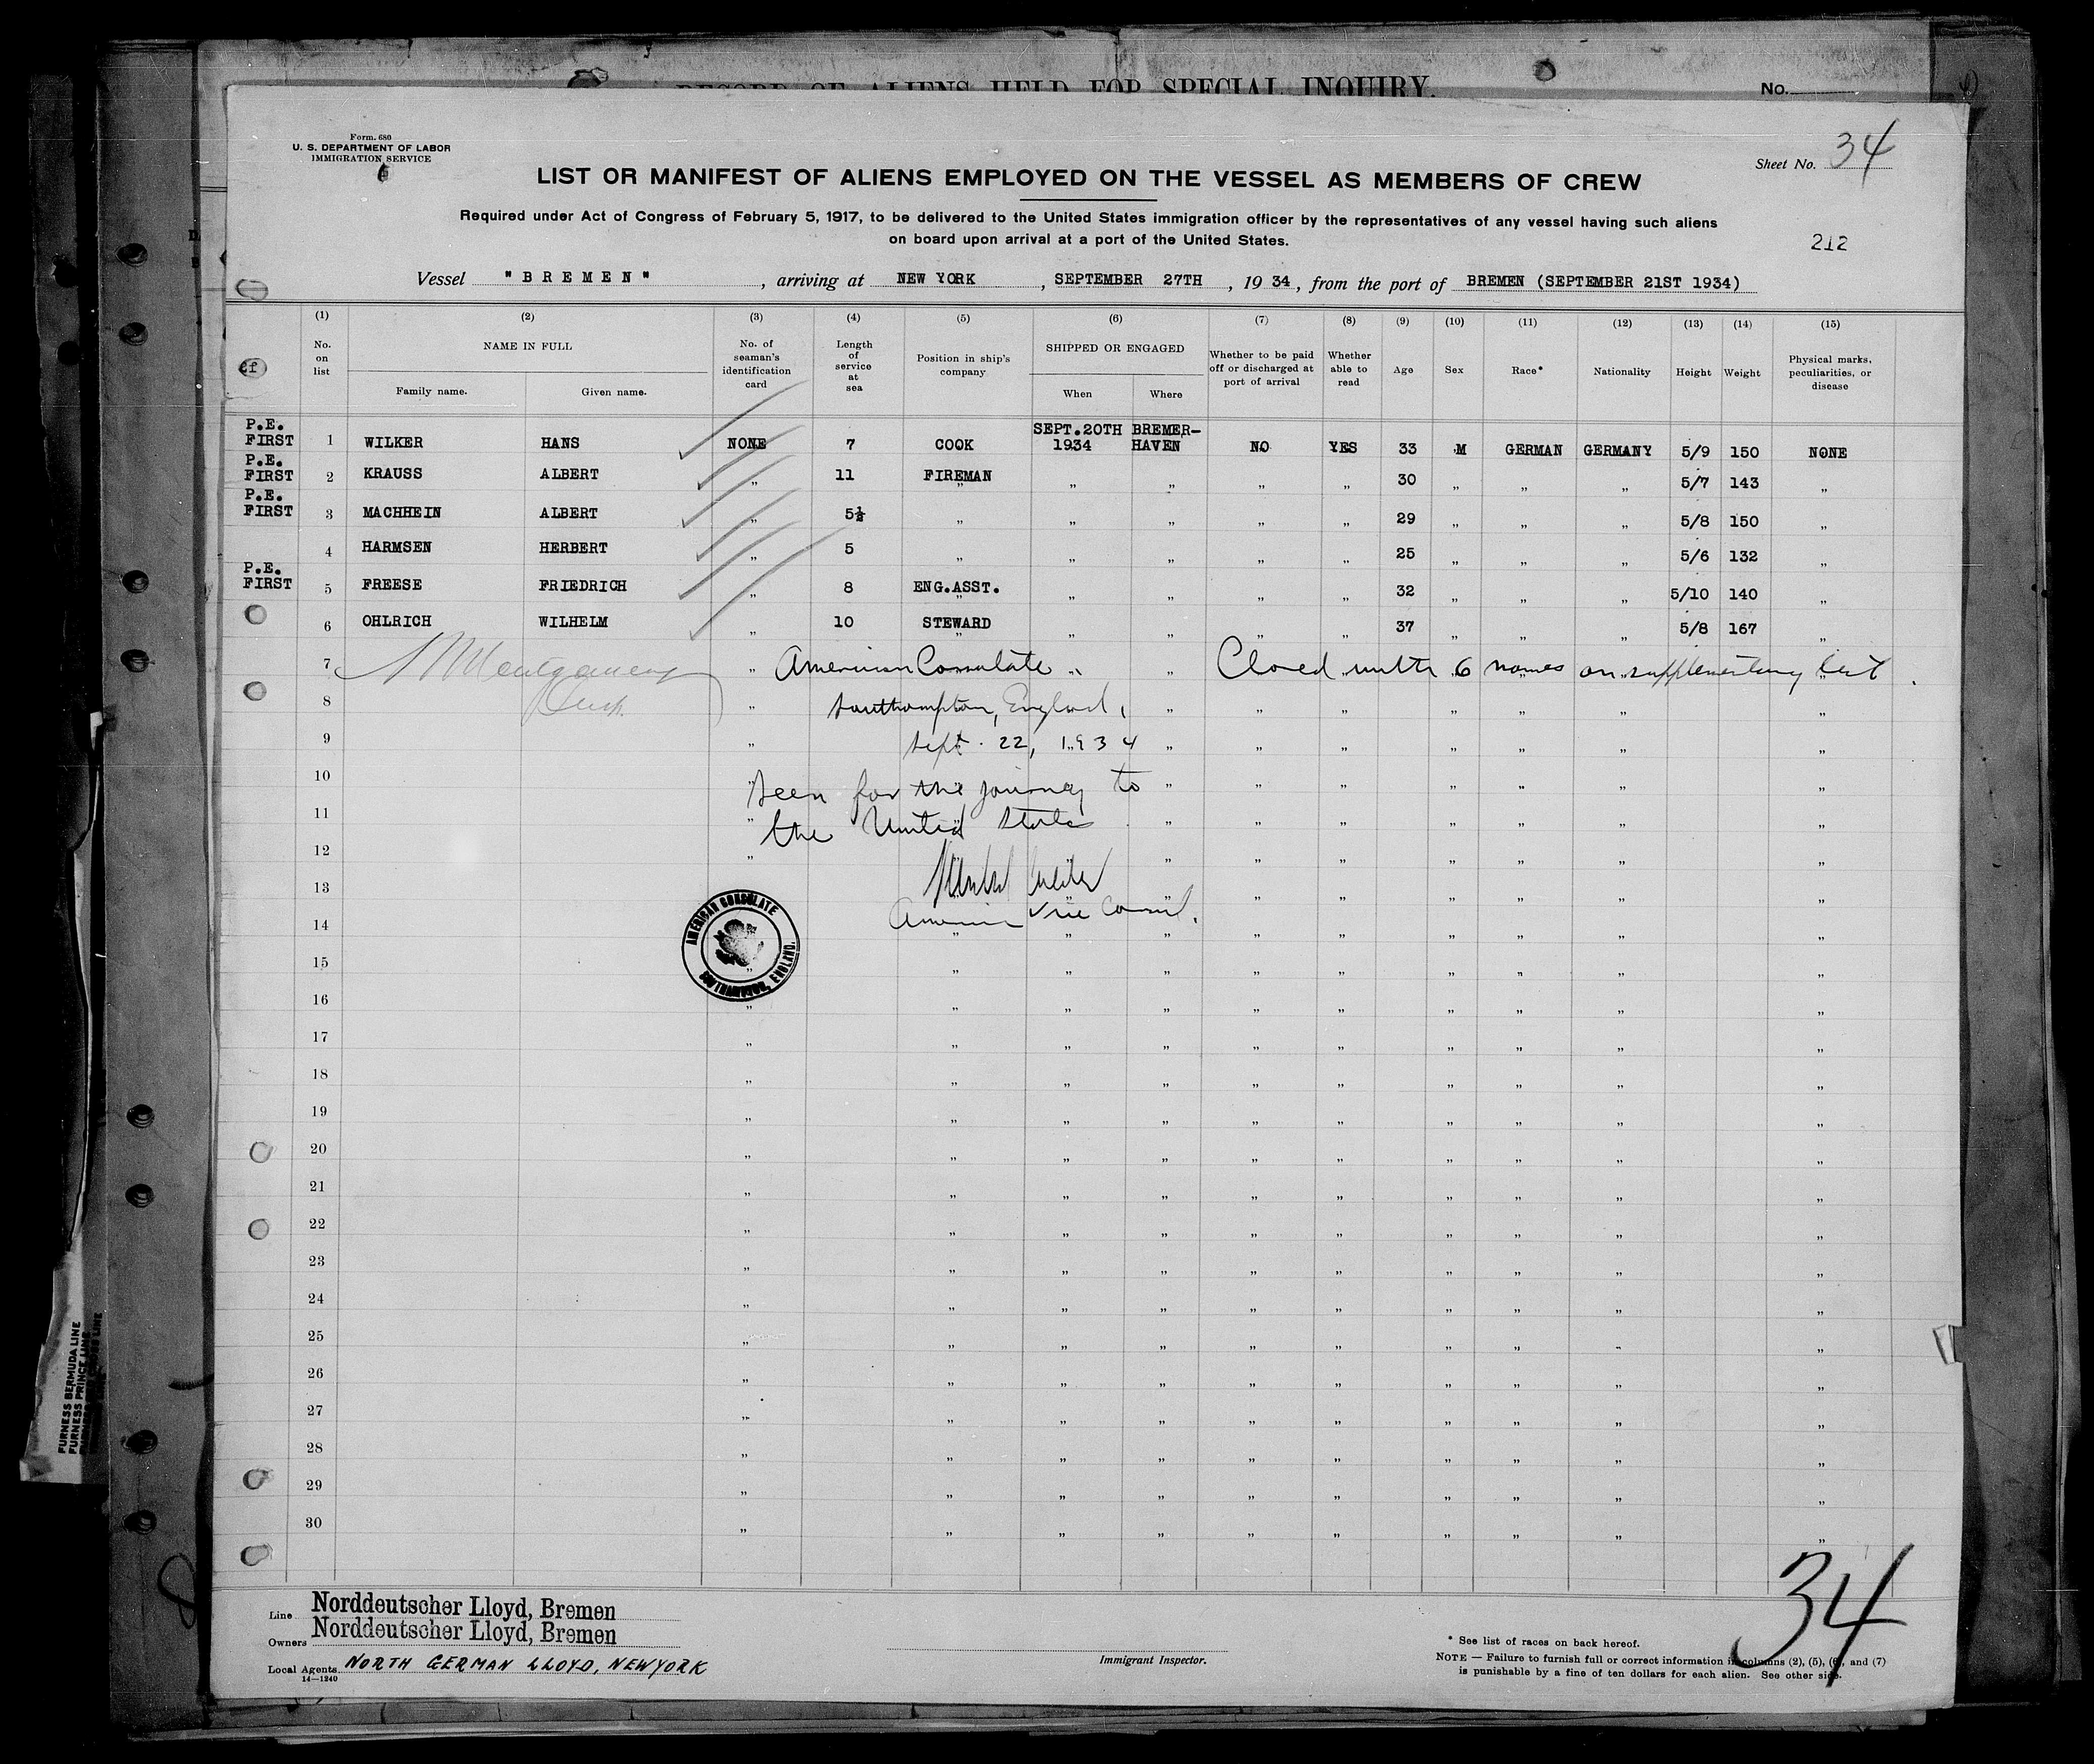 RECORD OF ALIENS HELD FOR SPECIAL INQUIRY.
No.
Form. 680
U. S. DEPARTMENT OF LABOR
IMMIGRATION SERVICE
Sheet No. 34
LIST OR MANIFEST OF ALIENS EMPLOYED ON THE VESSEL AS MEMBERS OF CREW
Required under Act of Congress of February 5, 1917, to be delivered to the United States immigration officer by the representatives of any vessel having such aliens
on board upon arrival at a port of the United States.
212
Vessel "BREMEN", arriving at NEW YORK, SEPTEMBER 27TH, 1934, from the port of BREMEN (SEPTEMBER 21ST 1934)
(1) (2) (3) (4) (5) (6) (7) (8) (9) (10) (11) (12) (13) (14) (15)
No. on list NAME IN FULL Family name. Given name. No. of seaman's identification card Length of service at sea Position in ship's company SHIPPED OR ENGAGED When Where Whether to be paid off or discharged at port of arrival Whether able to read Age Sex Race* Nationality Height Weight Physical marks, peculiarities, or disease
P.E. FIRST 1 WILKER HANS NONE 7 COOK SEPT.20TH 1934 BREMER-HAVEN NO YES 33 M GERMAN GERMANY 5/9 150 NONE
P.E. FIRST 2 KRAUSS ALBERT „ 11 FIREMAN „ „ „ „ 30 „ „ „ 5/7 143 „
P.E. FIRST 3 MACHHEIN ALBERT „ 5½ „ „ „ „ „ 29 „ „ „ 5/8 150 „
4 HARMSEN HERBERT „ 5 „ „ „ „ „ 25 „ „ „ 5/6 132 „
P.E. FIRST 5 FREESE FRIEDRICH „ 8 ENG.ASST. „ „ „ „ 32 „ „ „ 5/10 140 „
6 OHLRICH WILHELM „ 10 STEWARD „ „ „ „ 37 „ „ „ 5/8 167 „
7 Montgomery American Consulate Closed with 6 names on supplementary list.
8 Southampton, England,
9 Sept. 22, 1934
10 Seen for the journey to
11 the United States
12
13
14 American Vice Consul.
AMERICAN CONSULATE
SOUTHAMPTON, ENGLAND.
15
16
17
18
19
20
21
22
23
24
25
26
27
28
29
30
34
Line Norddeutscher Lloyd, Bremen
Owners Norddeutscher Lloyd, Bremen
Local Agents NORTH GERMAN LLOYD, NEWYORK
14—1240
Immigrant Inspector.
* See list of races on back hereof.
NOTE — Failure to furnish full or correct information in columns (2), (5), (6), and (7)
is punishable by a fine of ten dollars for each alien. See other side.
FURNESS BERMUDA LINE
FURNESS PRINCE LINE